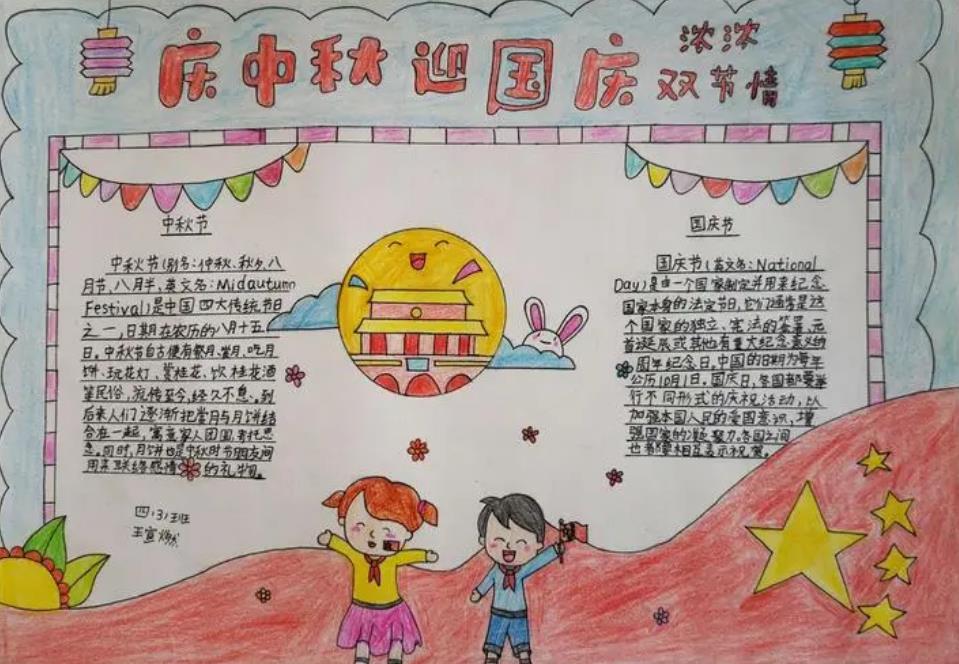 庆中秋迎国庆
浓浓
双节情
中秋节
中秋节(别名:仲秋、秋夕、八
月节、八月半,英文名:Midautumn
Festival)是中国四大传统节日
之一,日期在农历的八月十五
日。中秋节自古便有祭月、赏月、吃月
饼、玩花灯、赏桂花、饮桂花酒
等民俗,流传至今,经久不息。到
后来人们逐渐把赏月与月饼结
合在一起,寓意家人团圆,寄托思
念。同时,月饼也是中秋时节朋友间
用来联络感情的礼物。
四(3)班
王宣
国庆节
国庆节(英文名:National
Day)是由一个国家制定并用来纪念
国家本身的法定节日,它们通常是这
个国家的独立、宪法的签署、元
首诞辰或其他有重大纪念意义的
周年纪念日。中国的日期为每年
公历10月1日。国庆日,各国都要举
行不同形式的庆祝活动,以
加强本国人民的爱国意识,增
强国家的凝聚力。各国之间
也都要相互表示祝贺。